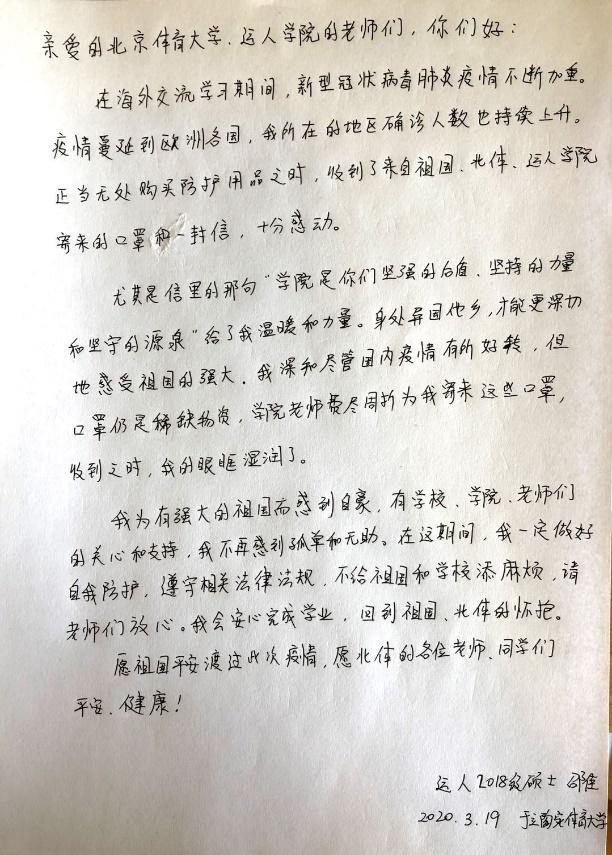 亲爱的北京体育大学、运人学院的老师们，你们好：
在海外交流学习期间，新型冠状病毒肺炎疫情不断加重。
疫情蔓延到欧洲各国，我所在的地区确诊人数也持续上升。
正当无处购买防护用品之时，收到了来自祖国、北体、运人学院
寄来的口罩和一封信，十分感动。
尤其是信里的那句“学院是你们坚强的后盾、坚持的力量
和坚守的源泉”给了我温暖和力量。身处异国他乡，才能更深切
地感受祖国的强大。我深知尽管国内疫情有所好转，但
口罩仍是稀缺物资，学院老师费尽周折为我寄来这些口罩，
收到之时，我的眼眶湿润了。
我为有强大的祖国而感到自豪，有学校、学院、老师们
的关心和支持，我不再感到孤单和无助。在这期间，我一定做好
自我防护，遵守相关法律法规，不给祖国和学校添麻烦，请
老师们放心。我会安心完成学业，回到祖国、北体的怀抱。
愿祖国平安渡过此次疫情，愿北体的各位老师、同学们
平安、健康！
运人2018级硕士
2020.3.19 于 体育大学